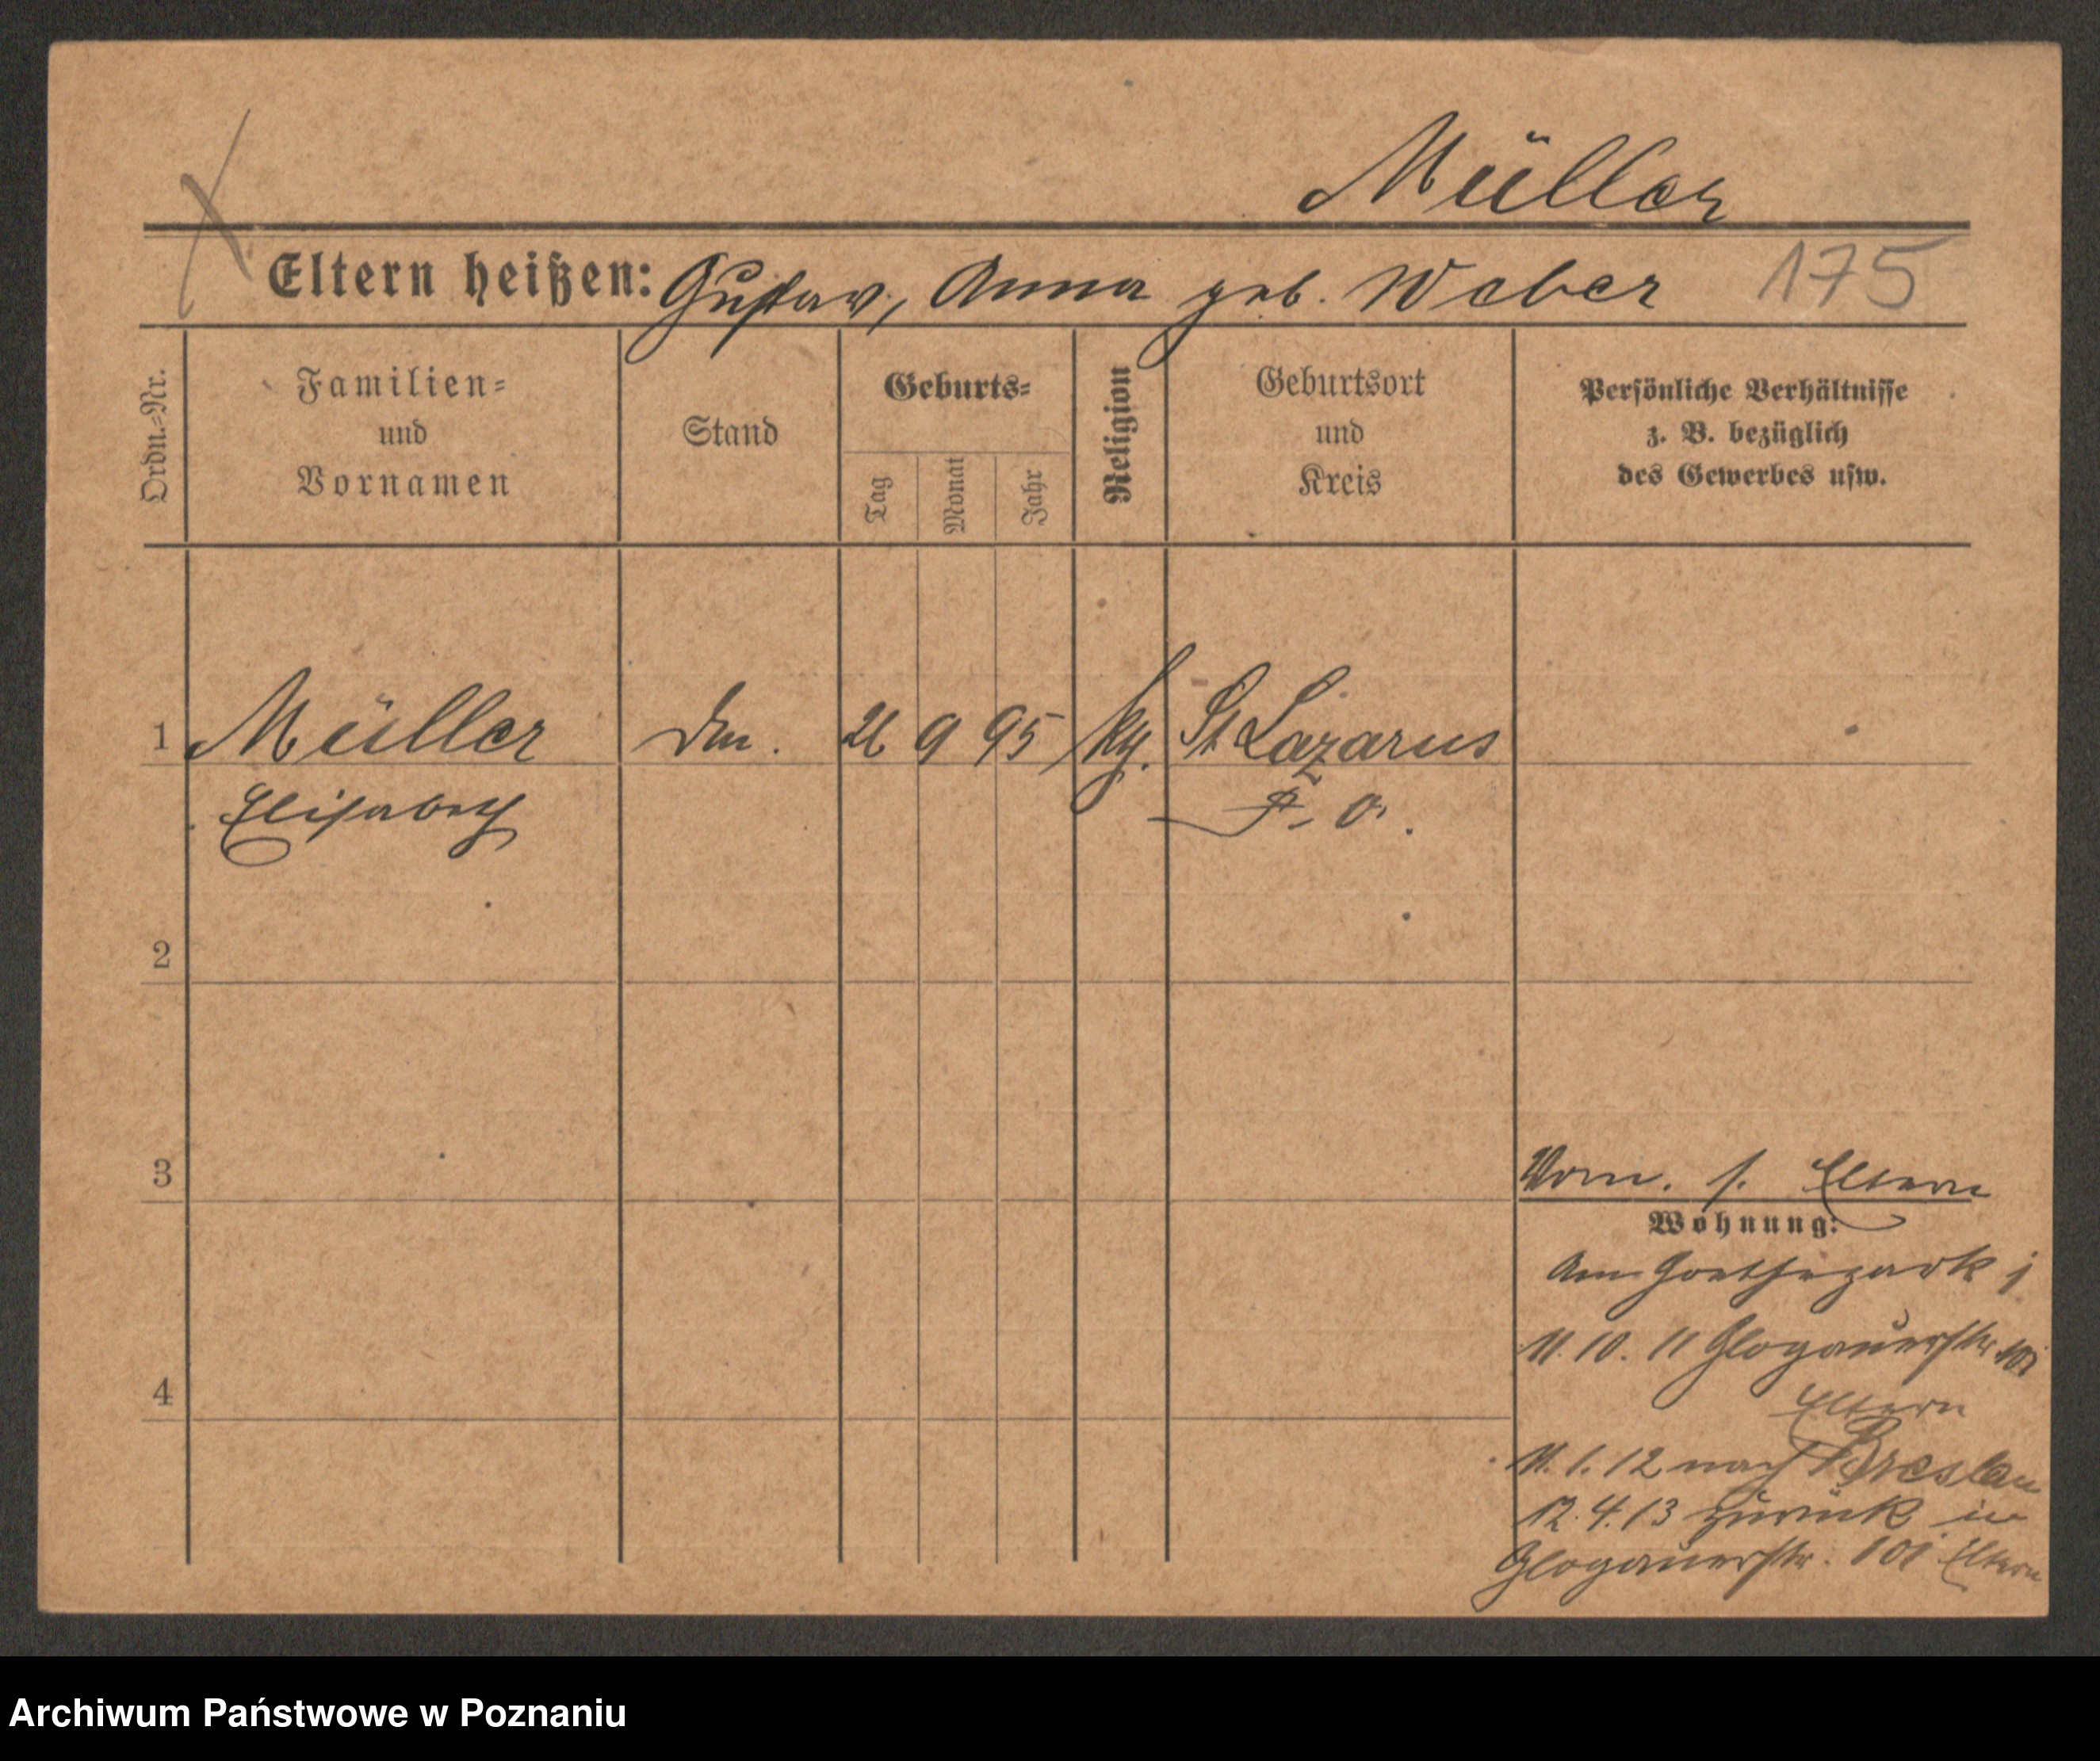 Müller
Eltern heißen: Gustav, Anna geb. Weber 175
Ordn.=Nr.
Familien=
und
Vornamen
Stand
Geburts=
Tag
Monat
Jahr
Religion
Geburtsort
und
Kreis
Persönliche Verhältnisse
z. B. bezüglich
des Gewerbes usw.
1 Müller 9 95 St Lazarus
Elisabeth P. O.
2
3
4
Vorm. s. Eltern
Wohnung:
Am Goethepark 1
11. 10. 11 Glogauerstr 101
Eltern
11. 1. 12 nach Breslau
12. 4. 13 zurück in
Glogauerstr. 101 Eltern
Archiwum Państwowe w Poznaniu